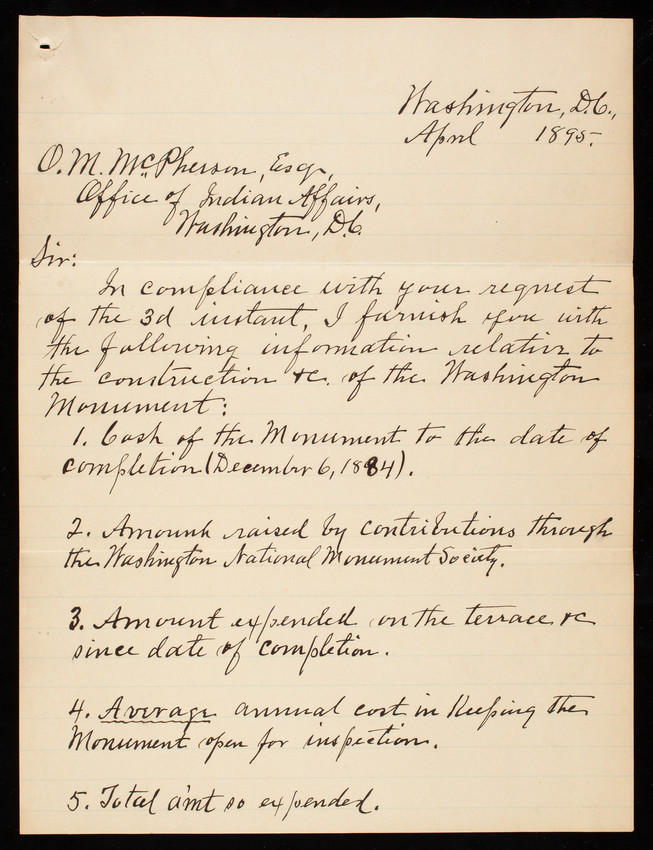 Washington, D.C.,
April 1895.
O. M. McPherson, Esqr,
Office of Indian Affairs,
Washington, D.C.
Sir:
In compliance with your request
of the 3d instant, I furnish you with
the following information relative to
the construction &c. of the Washington
Monument:
1. Cost of the Monument to the date of
completion (December 6, 1884).
2. Amount raised by contributions through
the Washington National Monument Society.
3. Amount expended on the terrace &c
since date of completion.
4. Average annual cost in keeping the
Monument open for inspection.
5. Total am't so expended.